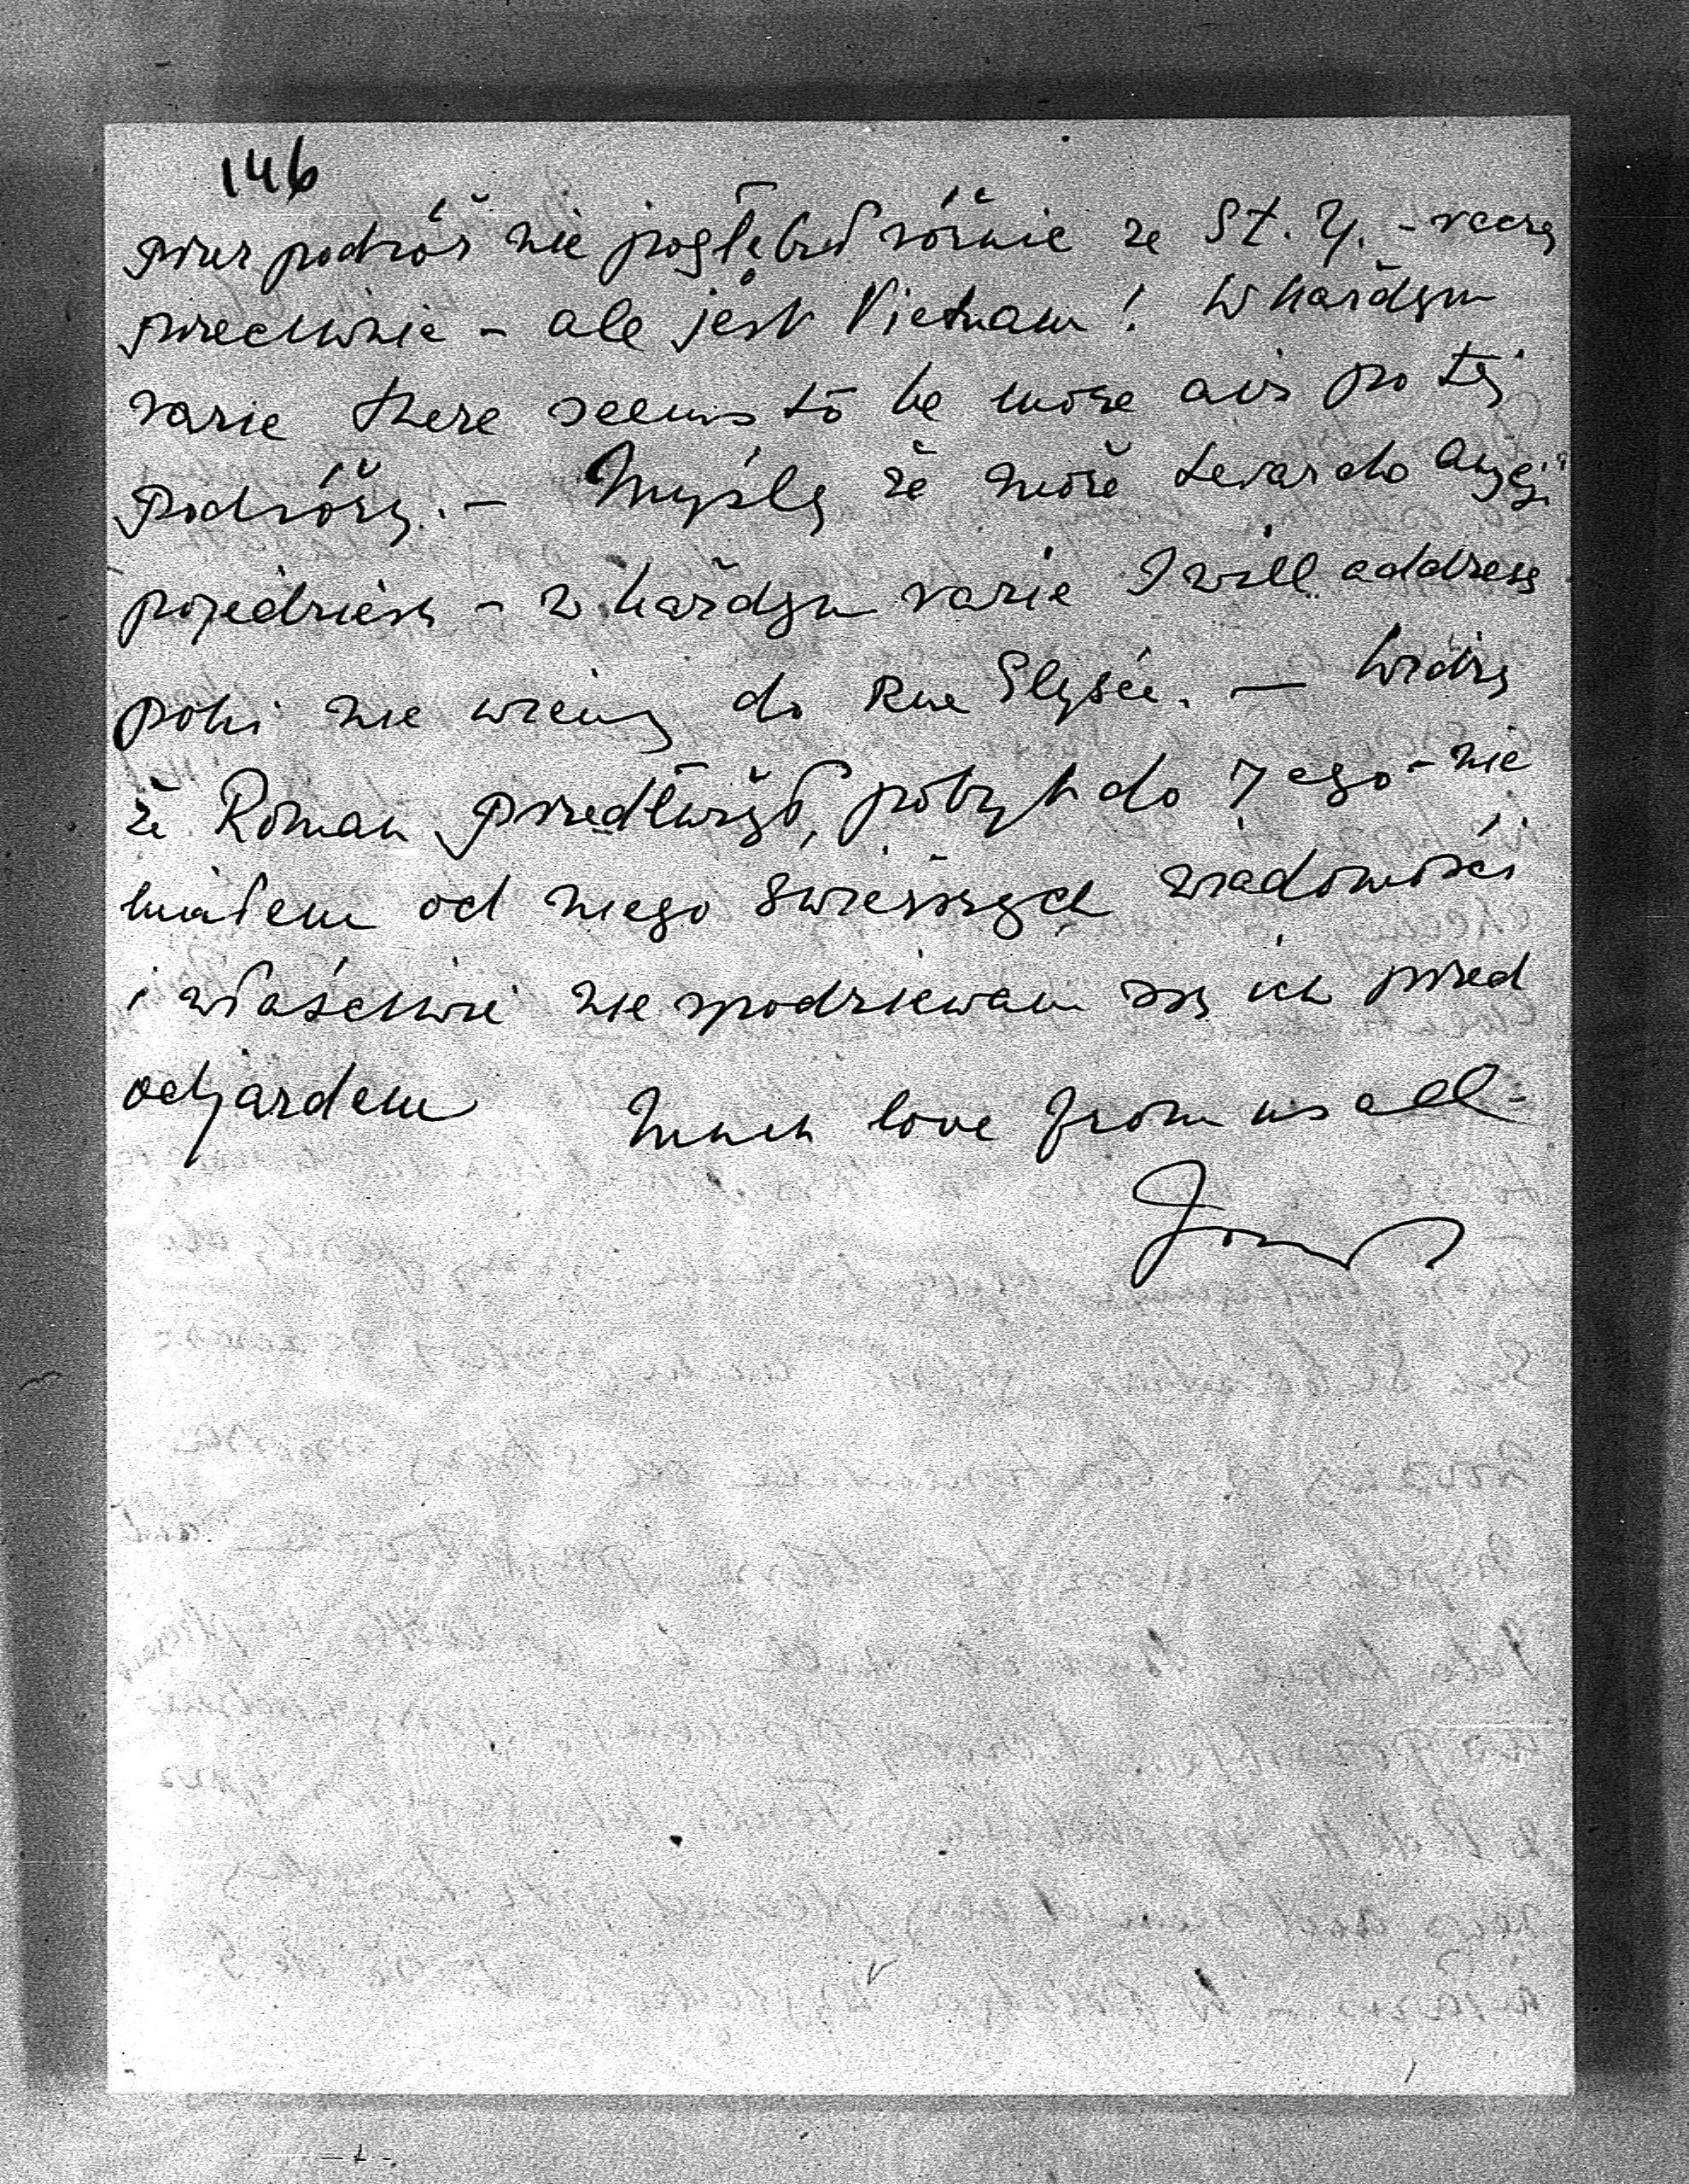 146
przez podróż nie pogłębił różnic ze St. Zj. - raczej
przeciwnie - ale jest Vietnam! W każdym
razie there seems to be more air po tej
podróży. - Myślę że może teraz do
pojedziesz - w każdym razie I will address
póki nie wiem do Rue Elysée. — Widzę
że Roman przedłużył pobyt do 7ego - nie
miałem od niego świeższych wiadomości
i właściwie nie spodziewam się ich przed
odjazdem Much love from us all -